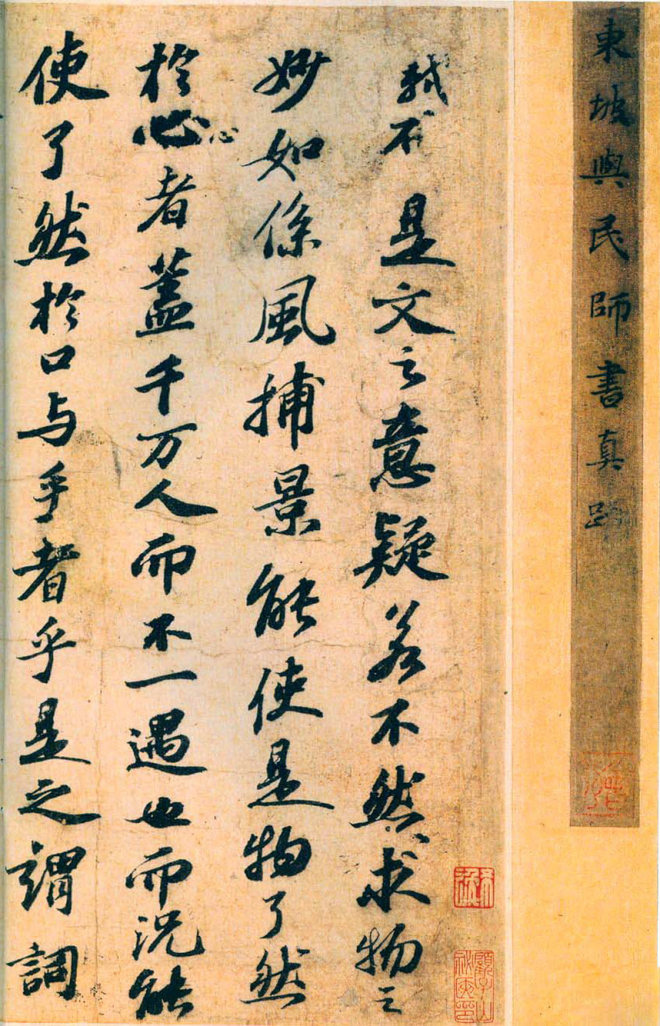 東坡與民師書真跡
是文之意疑若不然求物之
妙如係風捕景能使是物了然
於心心者蓋千万人而不一遇也而況能
使了然於口与手者乎是之謂詞